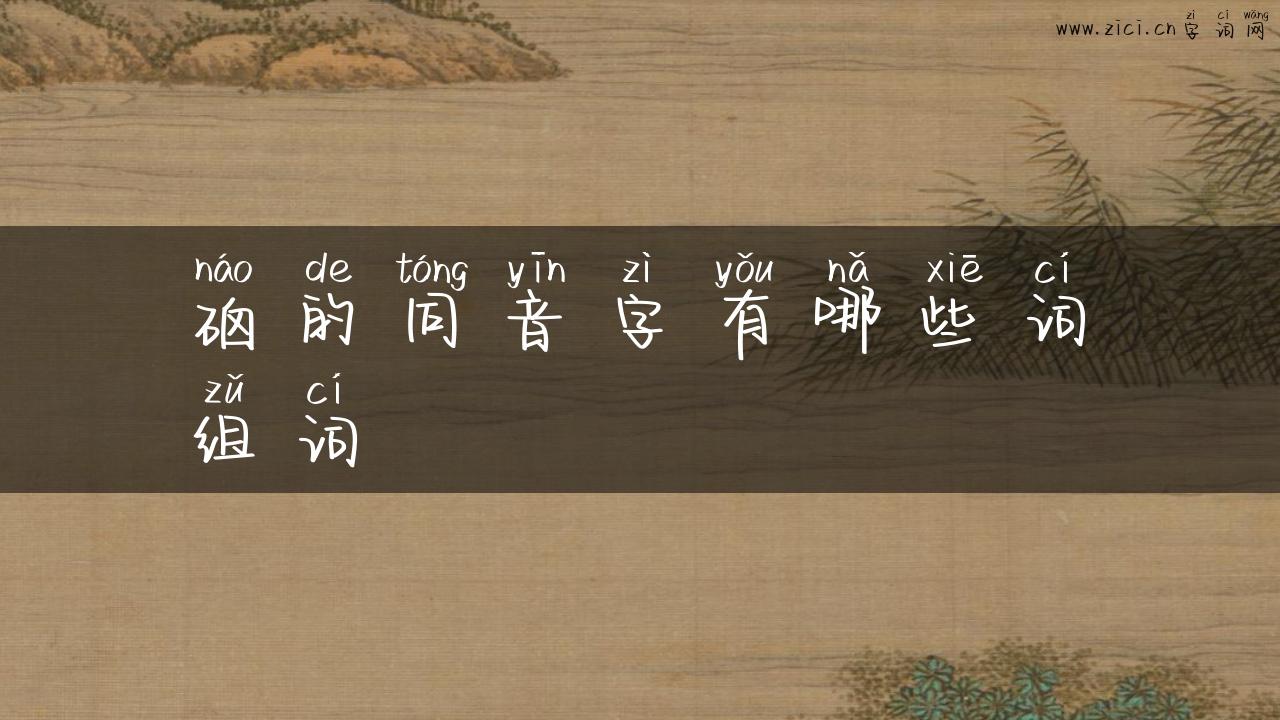 zì cí wǎng
www.zici.cn字词网
náo de tóng yīn zì yǒu nǎ xiē cí
硇的同音字有哪些词
zǔ cí
组词